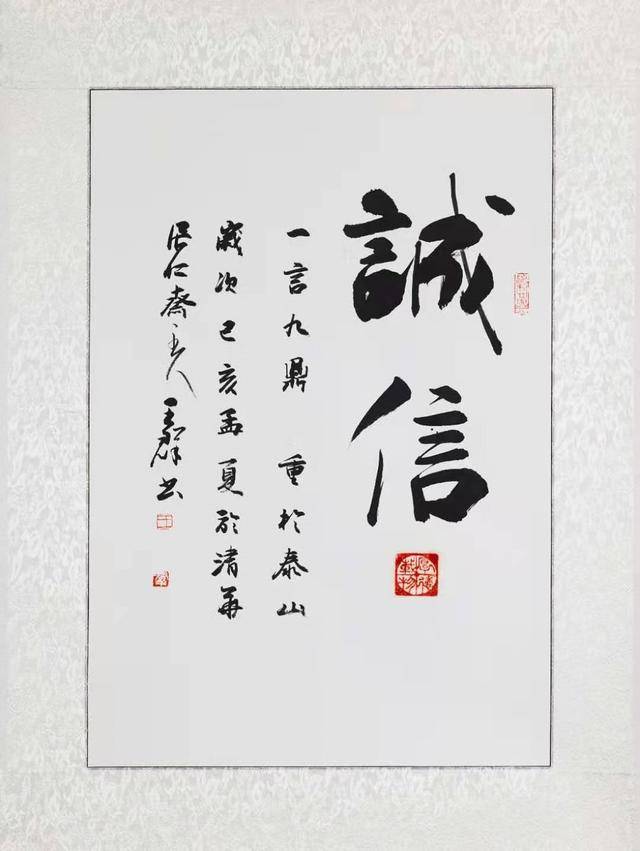 誠信
一言九鼎 重於泰山
歲次己亥孟夏於清華
居仁齋主人 王群书